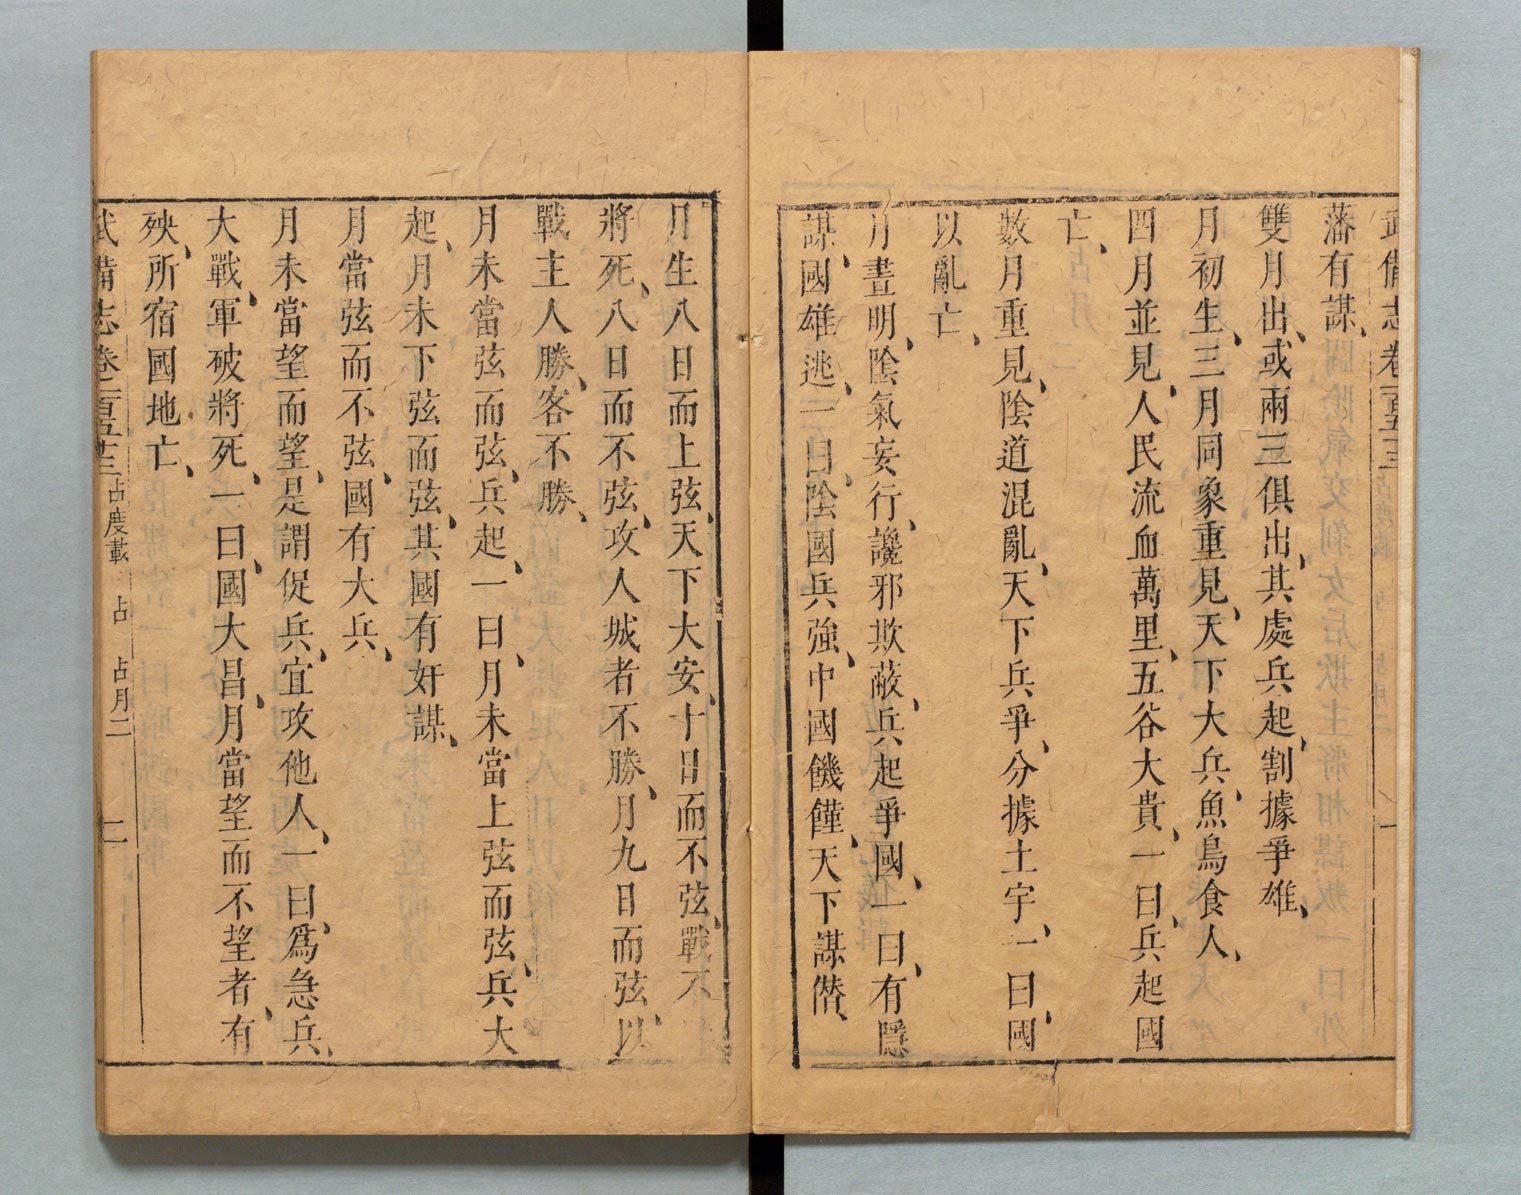 武備志卷一百五十三
藩有謀、
雙月出、或兩三俱出、其處兵起、割據爭雄、
月初生、三月同象重見、天下大兵、魚鳥食人、
四月並見、人民流血萬里、五谷大貴、一曰、兵起國
亡、
數月重見、陰道混亂、天下兵爭、分據土宇、一曰、國
以亂亡、
月晝明、陰氣妄行、讒邪欺蔽、兵起爭國、一曰、有隱
謀、國雄逃、一曰、陰國兵強、中國饑饉、天下謀僭、
月生八日而上弦、天下大安、十日而不弦、戰不
將死、八日而不弦、攻人城者不勝、月九日而弦、以
戰主人勝、客不勝、
月未當弦而弦、兵起、一曰、月未當上弦而弦、兵大
起、月未下弦而弦、其國有奸謀、
月當弦而不弦、國有大兵、
月未當望而望、是謂促兵、宜攻他人、一曰、爲急兵、
大戰、軍破將死、一曰、國大昌、月當望而不望者、有
殃、所宿國地亡、
武備志卷一百五十三 占度載 占 占月二 二